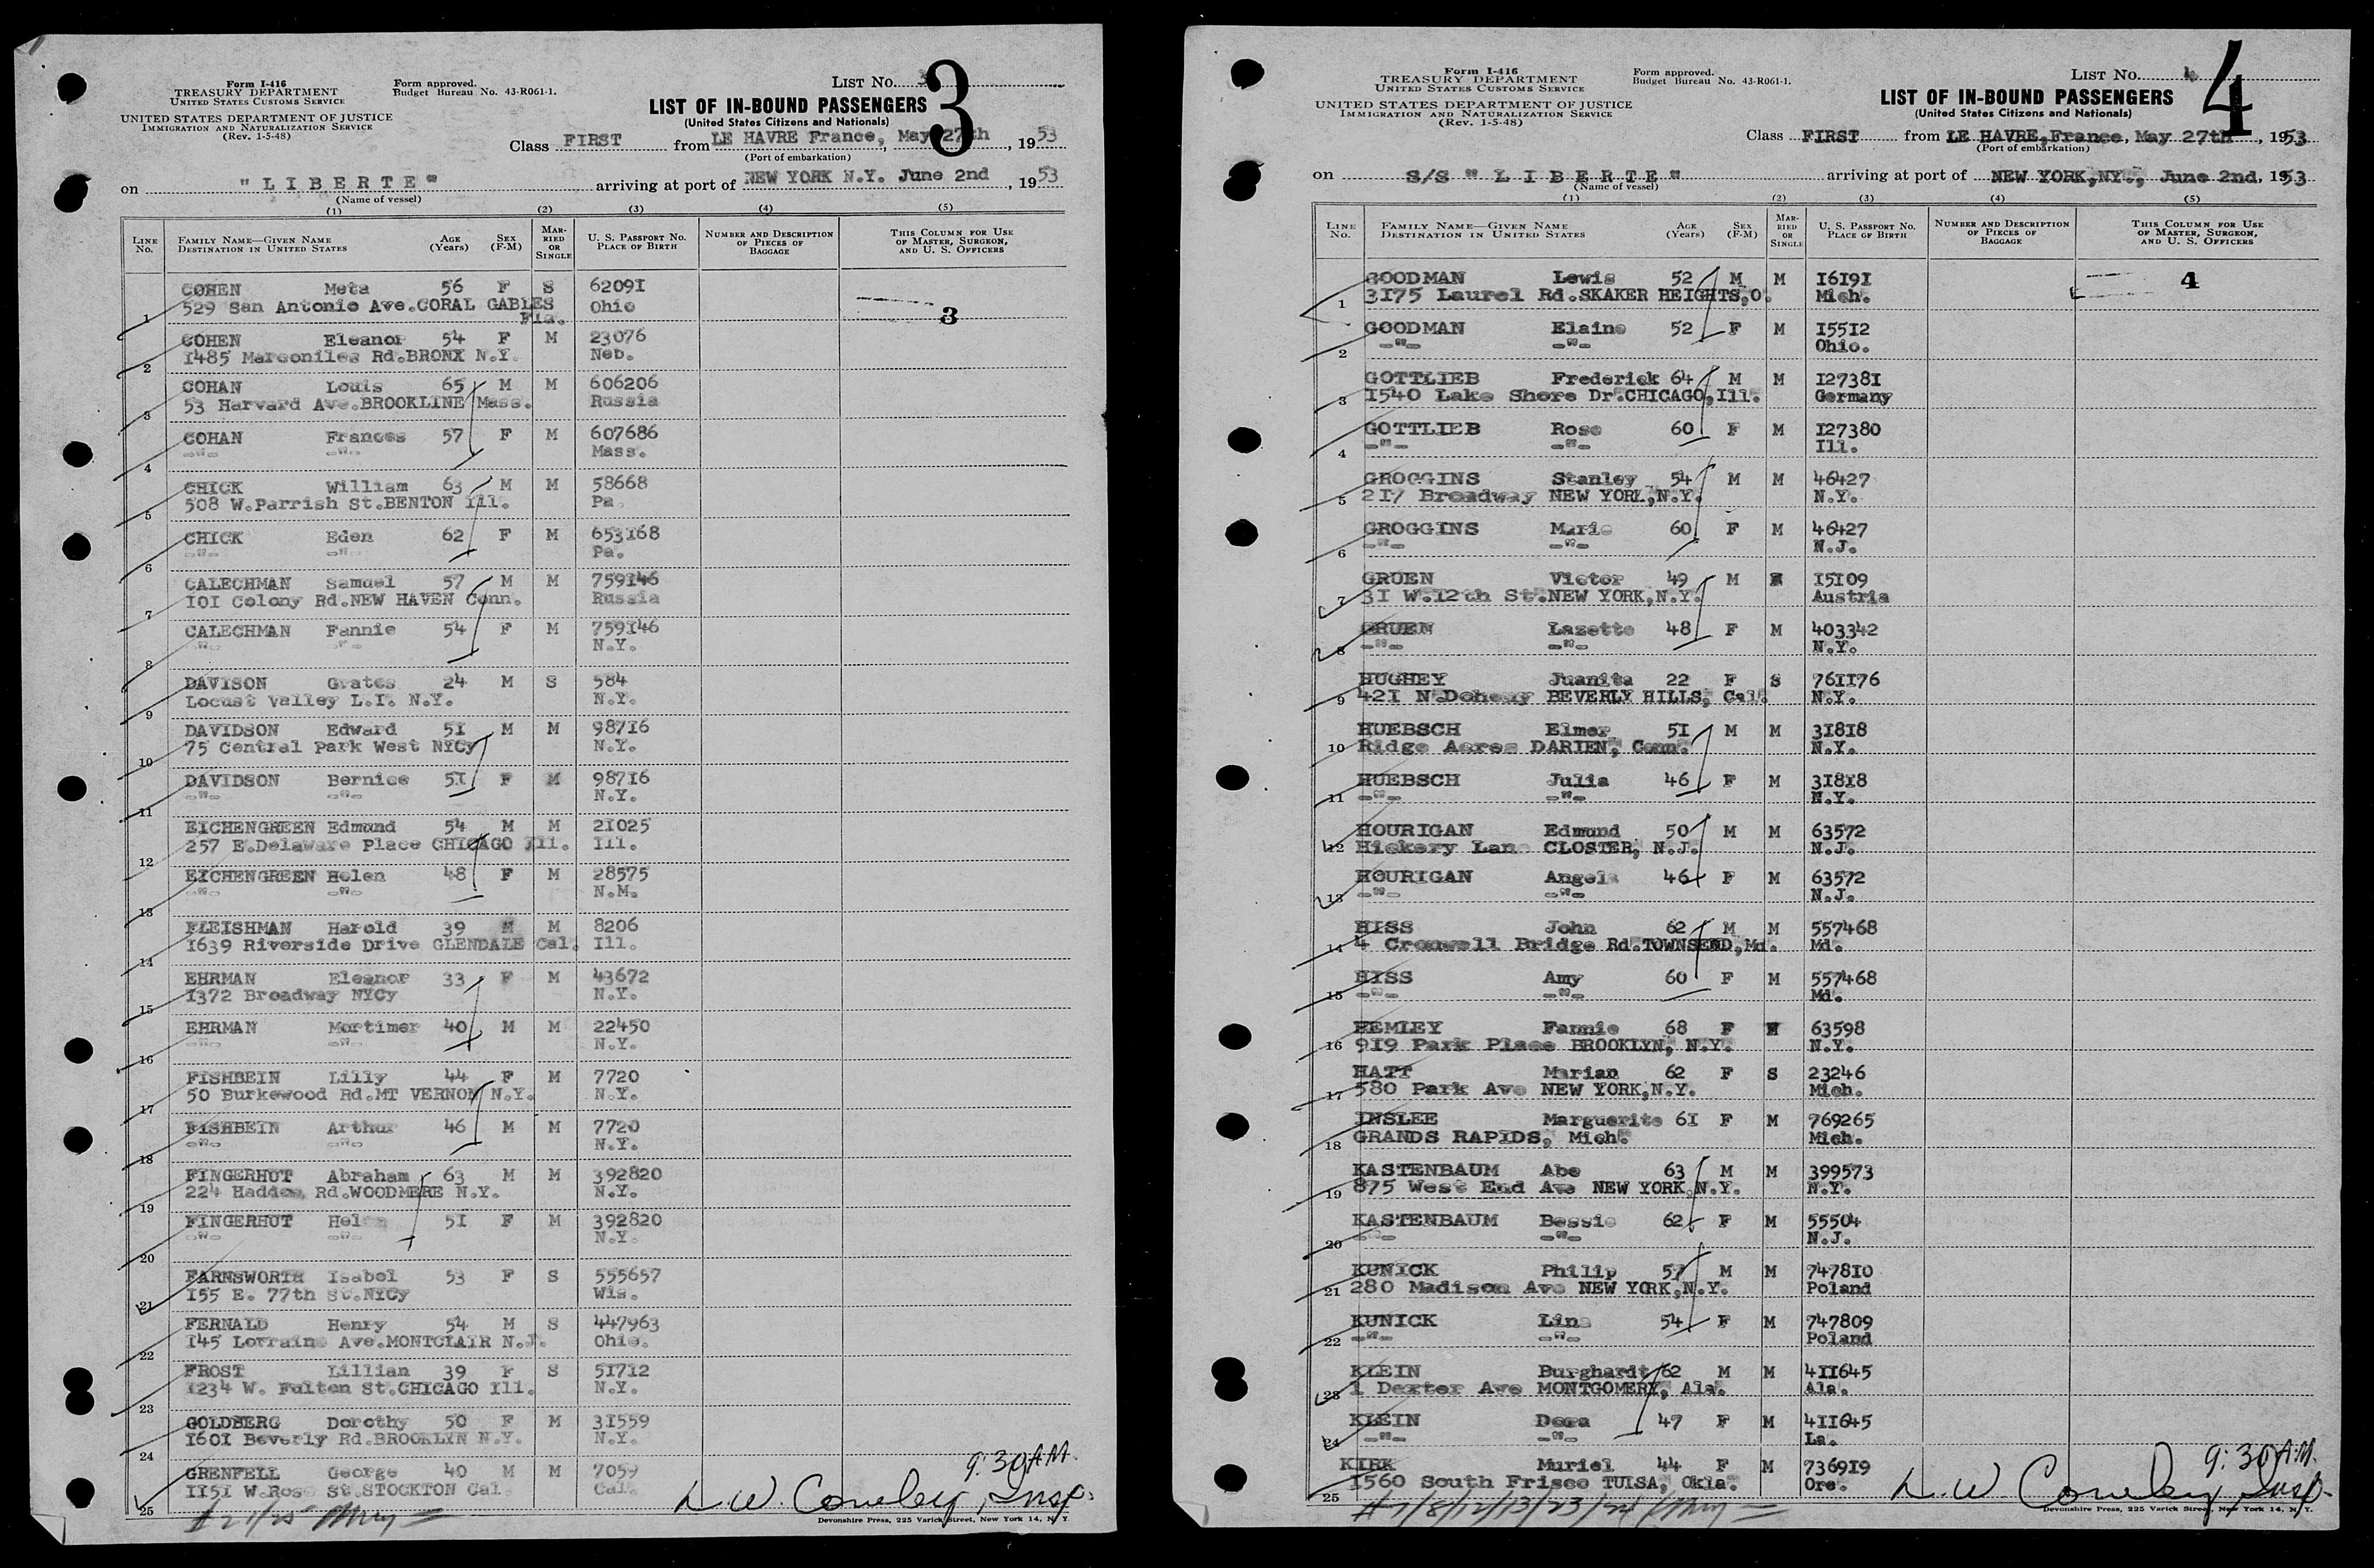 Form I-416
TREASURY DEPARTMENT
UNITED STATES CUSTOMS SERVICE
Form approved.
Budget Bureau No. 43-R061-1.
LIST NO. 3
3
UNITED STATES DEPARTMENT OF JUSTICE
IMMIGRATION AND NATURALIZATION SERVICE
(Rev. 1-5-48)
LIST OF IN-BOUND PASSENGERS
(United States Citizens and Nationals)
Class FIRST from LE HAVRE France, May 27th, 1953
(Port of embarkation)
on "LIBERTE" arriving at port of NEW YORK N.Y. June 2nd, 1953
(Name of vessel)
(1) (2) (3) (4) (5)
LINE NO. FAMILY NAME—GIVEN NAME DESTINATION IN UNITED STATES AGE (Years) SEX (F-M) MARRIED OR SINGLE U. S. PASSPORT NO. PLACE OF BIRTH NUMBER AND DESCRIPTION OF PIECES OF BAGGAGE THIS COLUMN FOR USE OF MASTER, SURGEON, AND U. S. OFFICERS
COHEN Meta 56 F S 62091
1 529 San Antonio Ave.CORAL GABLES Fla. Ohio 3
COHEN Eleanor 54 F M 23076
2 1485 Marconiles Rd.BRONX N.Y. Neb.
COHAN Louis 65 M M 606206
3 53 Harvard Ave.BROOKLINE Mass. Russia
COHAN Frances 57 F M 607686
4 -"- -"- Mass.
CHICK William 63 M M 58668
5 508 W.Parrish St.BENTON Ill. Pa.
CHICK Eden 62 F M 653168
6 -"- -"- Pa.
CALECHMAN Samuel 57 M M 759146
7 101 Colony Rd.NEW HAVEN Conn. Russia
CALECHMAN Fannie 54 F M 759146
8 -"- -"- N.Y.
DAVISON Grates 24 M S 584
9 Locust Valley L.I. N.Y. N.Y.
DAVIDSON Edward 51 M M 98716
10 75 Central Park West NYCy N.Y.
DAVIDSON Bernice 51 F M 98716
11 -"- -"- N.Y.
EICHENGREEN Edmund 54 M M 21025
12 257 E.Delaware Place CHICAGO Ill. Ill.
EICHENGREEN Helen 48 F M 28575
13 -"- -"- N.M.
FLEISHMAN Harold 39 M M 8206
14 1639 Riverside Drive GLENDALE Cal. Ill.
EHRMAN Eleanor 33 F M 43672
15 1372 Broadway NYCy N.Y.
EHRMAN Mortimer 40 M M 22450
16 -"- -"- N.Y.
FISHBEIN Lilly 44 F M 7720
17 50 Burkewood Rd.MT VERNON N.Y. N.Y.
FISHBEIN Arthur 46 M M 7720
18 -"- -"- N.Y.
FINGERHUT Abraham 63 M M 392820
19 224 Haddon Rd.WOODMERE N.Y. N.Y.
FINGERHUT Helen 51 F M 392820
20 -"- -"- N.Y.
FARNSWORTH Isabel 53 F S 555657
21 155 E. 77th St.NYCy Wis.
FERNALD Henry 54 M S 447963
22 145 Lorraine Ave.MONTCLAIR N.J. Ohio.
FROST Lillian 39 F S 51712
23 1234 W. Fulton St.CHICAGO Ill. N.Y.
GOLDBERG Dorothy 50 F M 31559
24 1601 Beverly Rd.BROOKLYN N.Y. N.Y.
GRENFELL George 40 M M 7059
25 1151 W.Rose St.STOCKTON Cal. Cal.
9:30 AM.
L.W. Cowley, Insp.
Devonshire Press, 225 Varick Street, New York 14, N. Y.
Form I-416
TREASURY DEPARTMENT
UNITED STATES CUSTOMS SERVICE
Form approved.
Budget Bureau No. 43-R061-1.
LIST NO. 4
4
UNITED STATES DEPARTMENT OF JUSTICE
IMMIGRATION AND NATURALIZATION SERVICE
(Rev. 1-5-48)
LIST OF IN-BOUND PASSENGERS
(United States Citizens and Nationals)
Class FIRST from LE HAVRE,France, May 27th, 1953
(Port of embarkation)
on S/S "LIBERTE" arriving at port of NEW YORK,NY., June 2nd, 1953
(Name of vessel)
(1) (2) (3) (4) (5)
LINE NO. FAMILY NAME—GIVEN NAME DESTINATION IN UNITED STATES AGE (Years) SEX (F-M) MARRIED OR SINGLE U. S. PASSPORT NO. PLACE OF BIRTH NUMBER AND DESCRIPTION OF PIECES OF BAGGAGE THIS COLUMN FOR USE OF MASTER, SURGEON, AND U. S. OFFICERS
GOODMAN Lewis 52 M M 16191 4
1 3175 Laurel Rd.SKAKER HEIGHTS,O. Mich.
GOODMAN Elaine 52 F M 15512
2 -"- -"- Ohio.
GOTTLIEB Frederick 64 M M 127381
3 1540 Lake Shore Dr.CHICAGO,Ill. Germany
GOTTLIEB Rose 60 F M 127380
4 -"- -"- Ill.
GROGGINS Stanley 54 M M 46427
5 217 Broadway NEW YORK,N.Y. N.Y.
GROGGINS Marie 60 F M 46427
6 -"- -"- N.J.
GRUEN Victor 49 M 15109
7 31 W.12th St.NEW YORK,N.Y. Austria
GRUEN Lazette 48 F M 403342
8 -"- -"- N.Y.
HUGHEY Juanita 22 F S 761176
9 421 N.Doheny BEVERLY HILLS, Cal. N.Y.
HUEBSCH Elmer 51 M M 31818
10 Ridge Acres DARIEN, Conn. N.Y.
HUEBSCH Julia 46 F M 31818
11 -"- -"- N.Y.
HOURIGAN Edmund 50 M M 63572
12 Hickory Lane CLOSTER, N.J. N.J.
HOURIGAN Angela 46 F M 63572
13 -"- -"- N.J.
HISS John 62 M M 557468
14 4 Cromwell Bridge Rd.TOWNSEND,Md. Md.
HISS Amy 60 F M 557468
15 -"- -"- Md.
HEMLEY Fannie 68 F 63598
16 919 Park Place BROOKLYN, N.Y. N.Y.
HATT Marian 62 F S 23246
17 580 Park Ave NEW YORK,N.Y. Mich.
INSLEE Marguerite 61 F M 769265
18 GRANDS RAPIDS, Mich. Mich.
KASTENBAUM Abe 63 M M 399573
19 875 West End Ave NEW YORK,N.Y. N.Y.
KASTENBAUM Bessie 62 F M 55504
20 -"- -"- N.J.
KUNICK Philip 57 M M 747810
21 280 Madison Ave NEW YORK,N.Y. Poland
KUNICK Lina 54 F M 747809
22 -"- -"- Poland
KLEIN Burghardt 62 M M 411645
23 1 Dexter Ave MONTGOMERY, Ala. Ala.
KLEIN Dora 47 F M 411645
24 -"- -"- La.
KIRK Muriel 44 F M 736919
25 1560 South Frisco TULSA, Okla. Ore.
9:30 A.M.
L.W. Cowley Insp.
#7/8/12/13/23/24
Devonshire Press, 225 Varick Street, New York 14, N. Y.